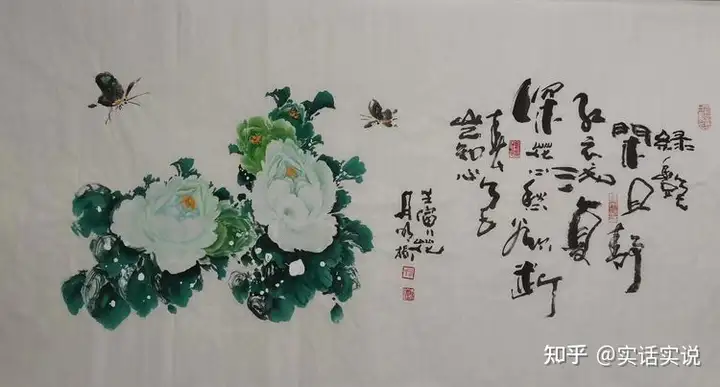 綠艷
閑且静
红衣浅复
深花心愁欲断
春色
岂知心
知乎 @实话实说